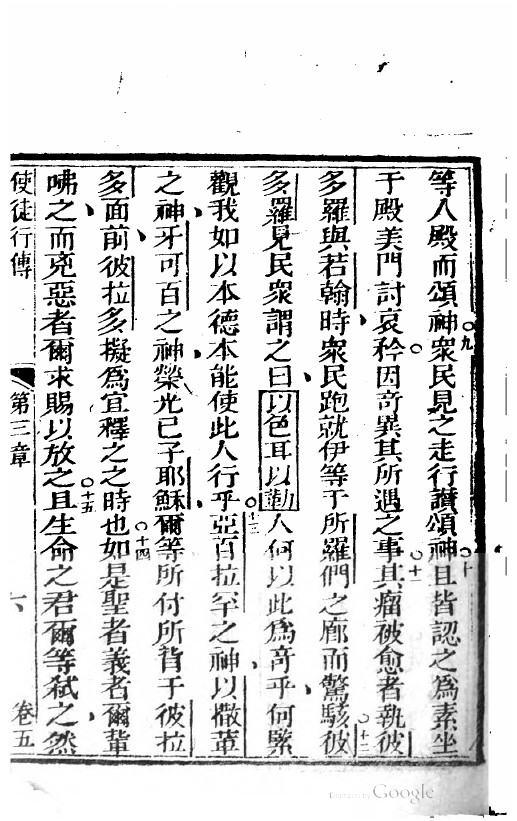 等人殿而頌神○九衆民見之走行讃頌神○十且皆認之爲素坐
于殿美門討哀矜因竒異其所遇之事○十一其瘤被愈者執彼
多羅與若翰時衆民跑就伊等于所羅們之廊而驚駭○十二彼
多羅見民衆謂之曰以色耳以勒人何以此爲竒乎何緊
觀我如以本德本能使此人行乎○十三亞百拉罕之神以撒革
之神牙可百之神榮光已子耶穌爾等所付所背于彼拉
多面前彼拉多擬爲宜釋之之時也○十四如是聖者義者爾軰
咈之而兇惡者爾求賜以放之○十五且生命之君爾等弑之然
使徒行傳 第三章 六 卷五
Digitized by Google